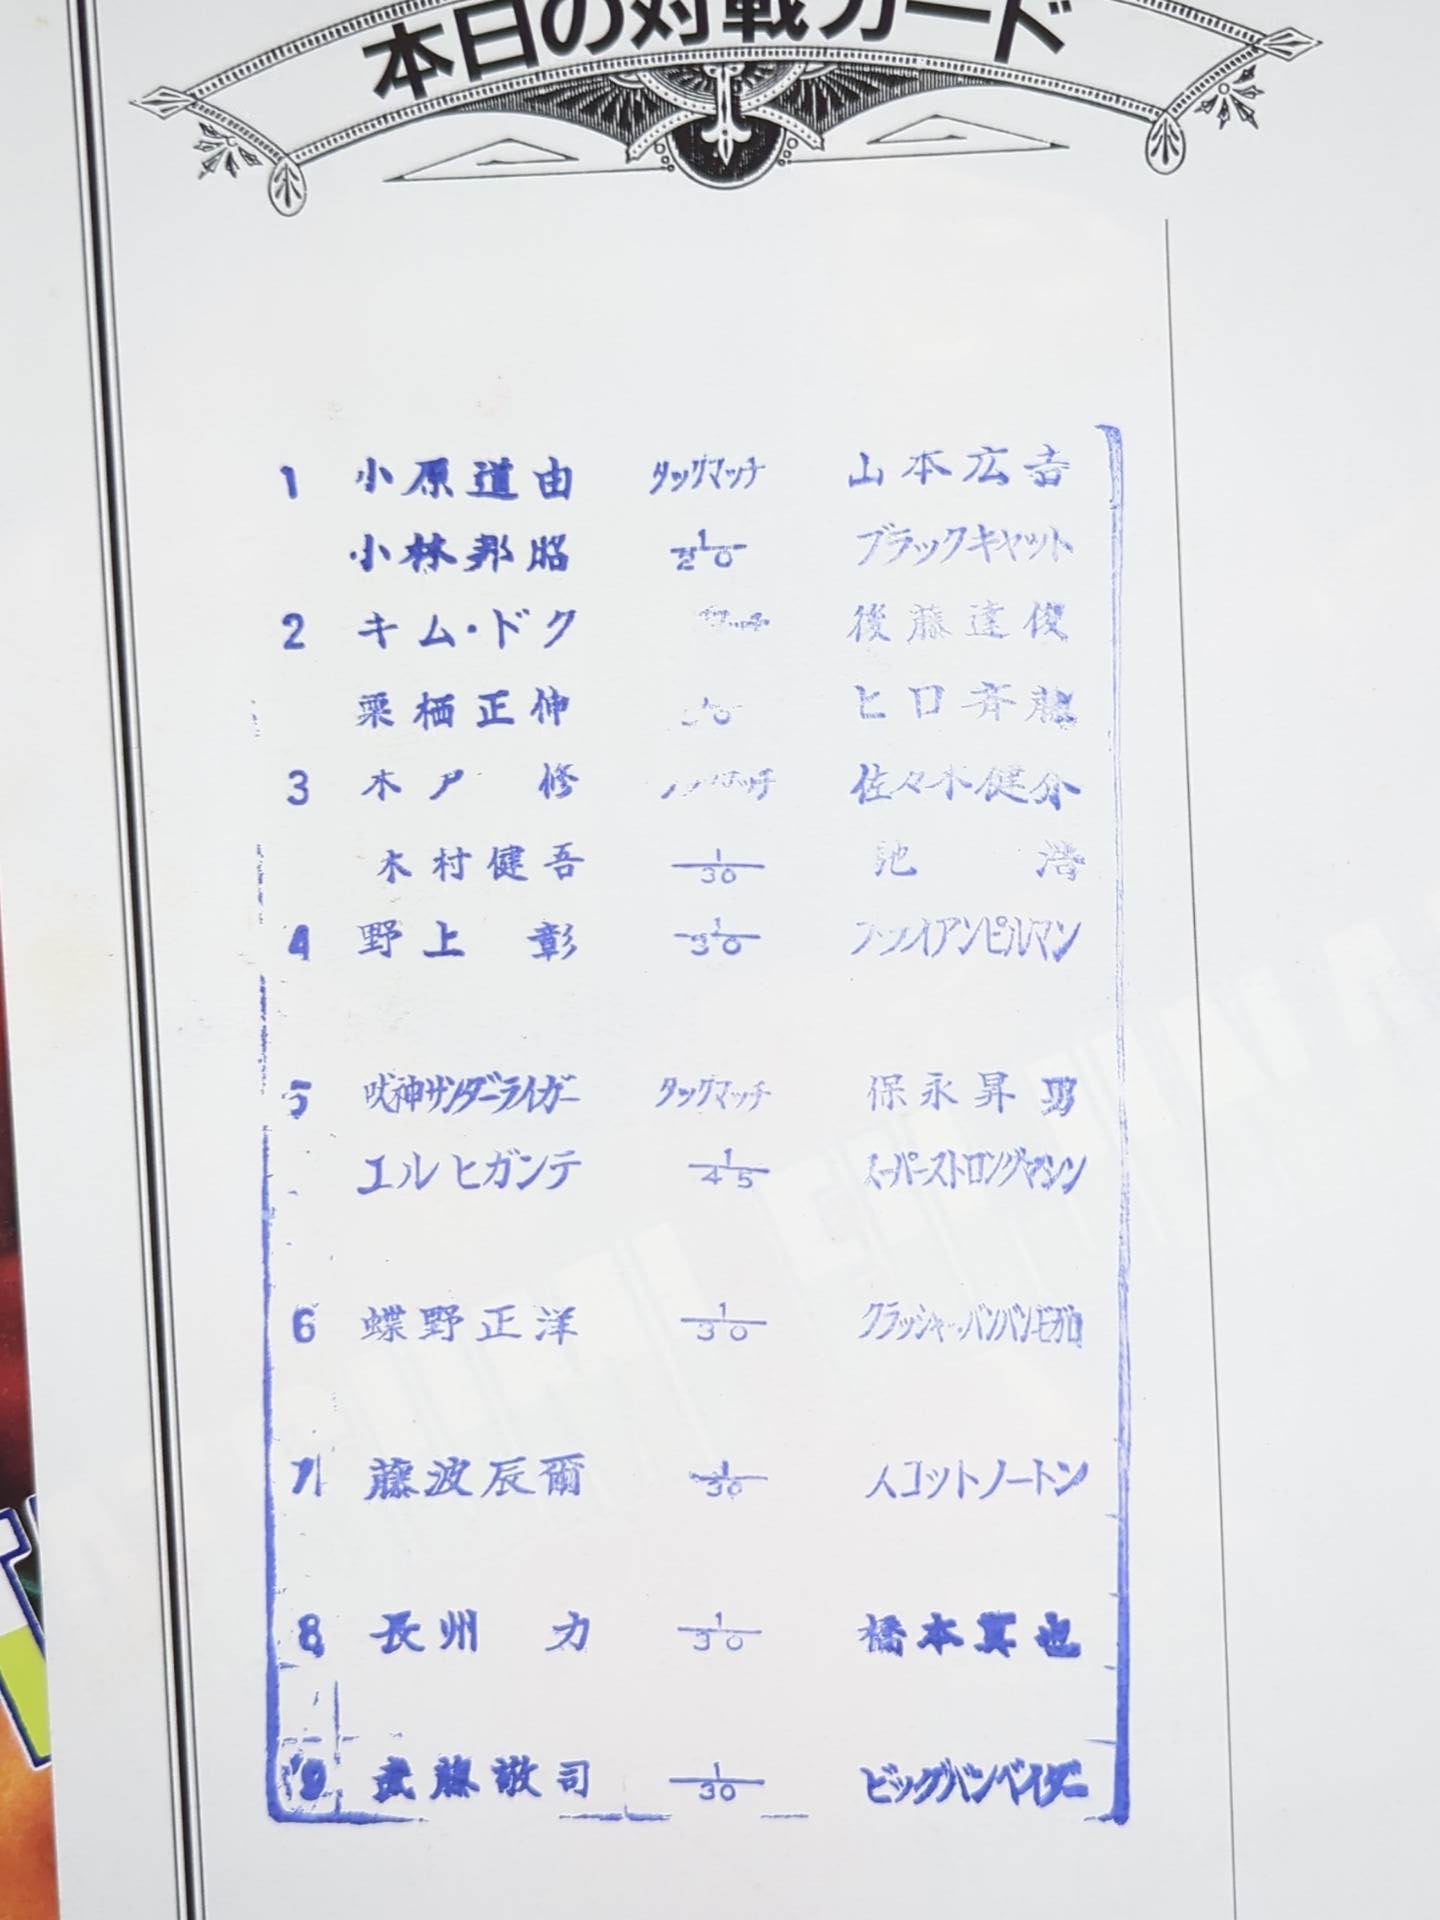 本日の対戦カード
1 小原道由 タッグマッチ 山本広吉
小林邦昭 1/20 ブラックキャット
2 キム・ドク 後藤達俊
栗栖正伸 ヒロ斉藤
3 木戸 修 佐々木健介
木村健吾 1/30 馳 浩
4 野上 彰 1/30 フライアンピルマン
5 獣神サンダーライガー タッグマッチ 保永昇男
エルヒガンテ 1/45 スーパーストロングマシン
6 蝶野正洋 1/30 クラッシャーバンバンビガロ
7 藤波辰爾 1/30 スコットノートン
8 長州 力 1/30 橋本真也
9 武藤敬司 1/30 ビッグバンベイダー